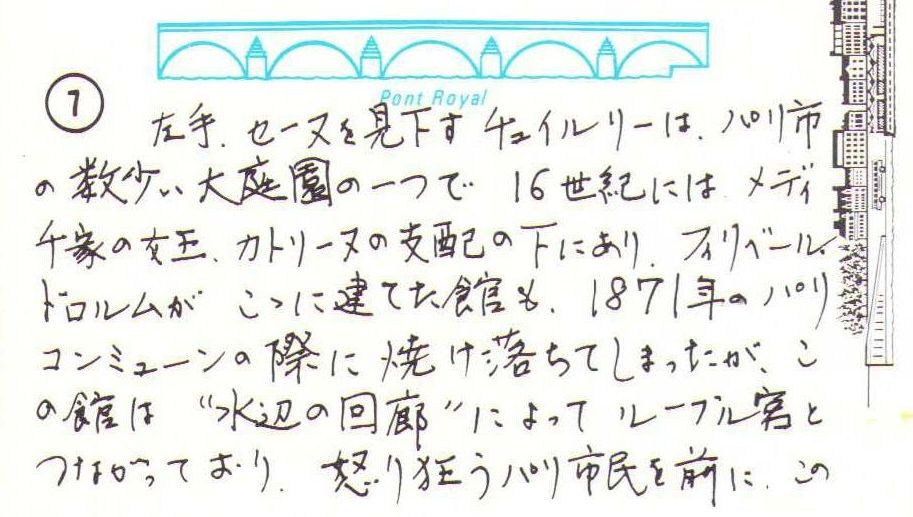 Pont Royal
7
左手、セーヌを見下すチュイルリーは、パリ市
の数少い大庭園の一つで 16世紀には メディ
チ家の女王、カトリーヌの支配の下にあり、フィリベール・
ドロルムが ここに建てた館も、1871年のパリ
コンミューンの際に焼け落ちてしまったが、こ
の館は“水辺の回廊”によって ルーブル宮と
つながっており、怒り狂うパリ市民を前に、この